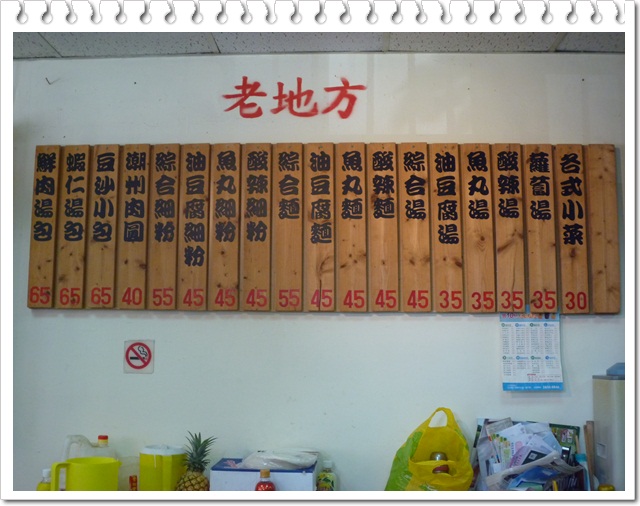 老地方
鮮肉湯包 65
蝦仁湯包 65
豆沙小包 65
潮州肉圓 40
綜合細粉 55
油豆腐細粉 45
魚丸細粉 45
酸辣細粉 45
綜合麵 55
油豆腐麵 45
魚丸麵 45
酸辣麵 45
綜合湯 45
油豆腐湯 35
魚丸湯 35
酸辣湯 35
蘿蔔湯 35
各式小菜 30